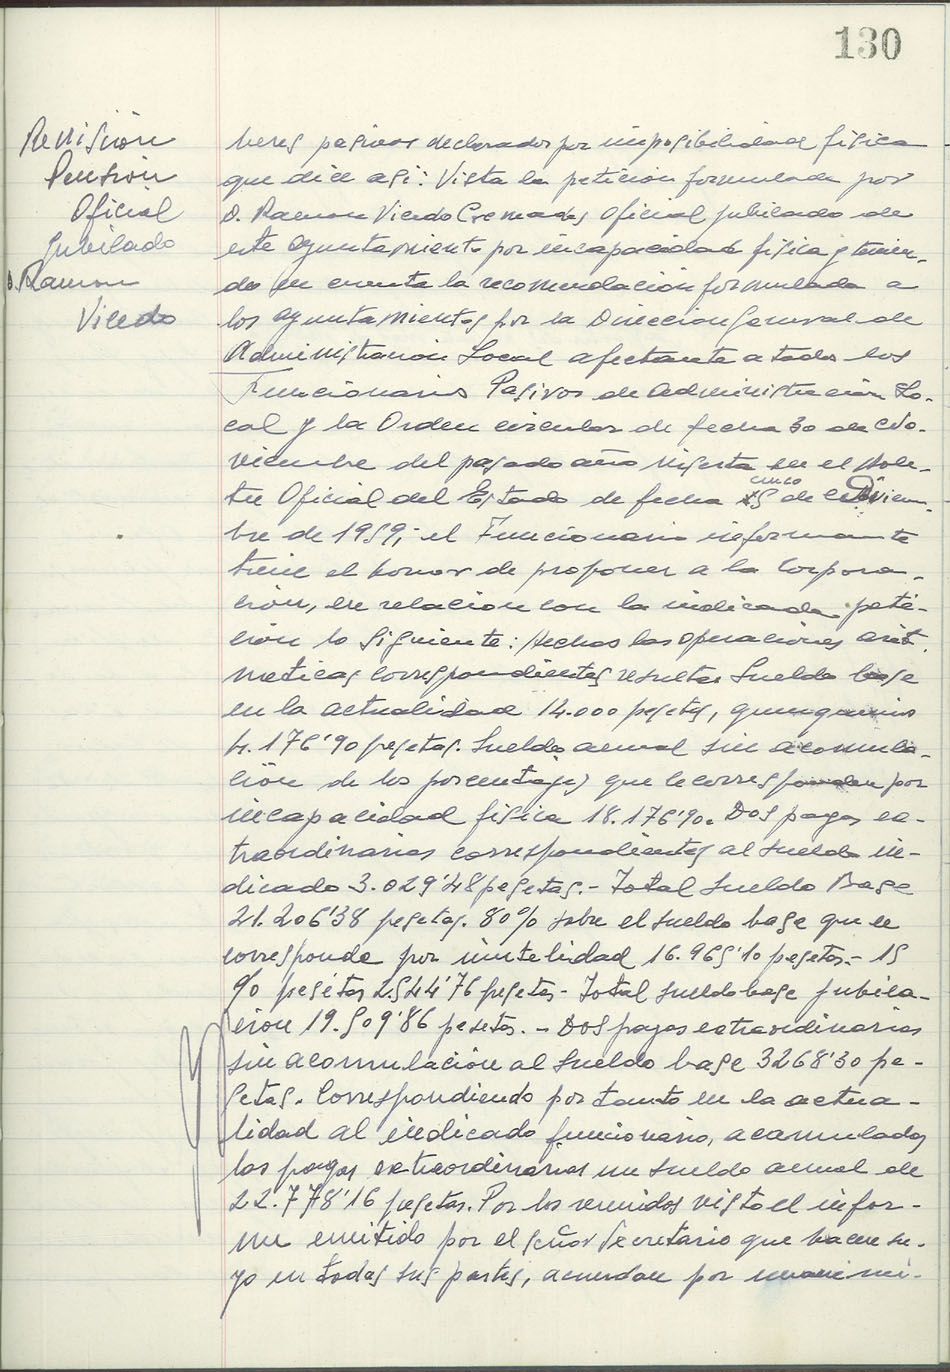 130
Revisión
Pensión
Oficial
Jubilado
D. Ramon
Vicedo
beres pasivos declarados por imposibilidad fisica
que dice asi: Vista la peticion formulada por
D. Ramon Vicedo Cremades Oficial jubilado de
este Ayuntamiento por incapacidad fisica y tenien-
do en cuenta la recomendacion formulada a
los Ayuntamientos por la Direccion General de
Administracion Local afectante a todos los
Funcionarios Pasivos de Administracion Lo-
cal y la Orden circular de fecha 30 de No-
viembre del pasado año inserta en el Bole-
tin Oficial del Estado de fecha cinco de Diciem-
bre de 1959; el Funcionario informante
tiene el honor de proponer a la Corpora-
cion, en relacion con la indicada peti-
cion lo siguiente: Hechas las operaciones arit-
meticas correspondientes resulta: Sueldo base
en la actualidad 14.000 pesetas, quinquenios
4.176'90 pesetas. Sueldo anual sin acomula-
ción de los porcentajes que le corresponden por
incapacidad fisica 18.176'90. Dos pagas ex-
traordinarias correspondientes al sueldo in-
dicado 3.029'48 pesetas.- Total sueldo Base
21.206'38 pesetas. 80% sobre el sueldo base que le
corresponde por inutilidad 16.965'10 pesetas.- 15
% pesetas 2.544'76 pesetas- Total sueldo base jubila-
cion 19.509'86 pesetas. - Dos pagas extraordinarias
sin acomulación al sueldo base 3268'30 pe-
setas. Correspondiendo por tanto en la actua-
lidad al indicado funcionario, acamulados
las pagas extraordinarias un sueldo anual de
22.778'16 pesetas. Por los reunidos visto el infor-
me emitido por el señor Secretario que hacen su-
yo en todas sus partes, acuerdan por unanimi-